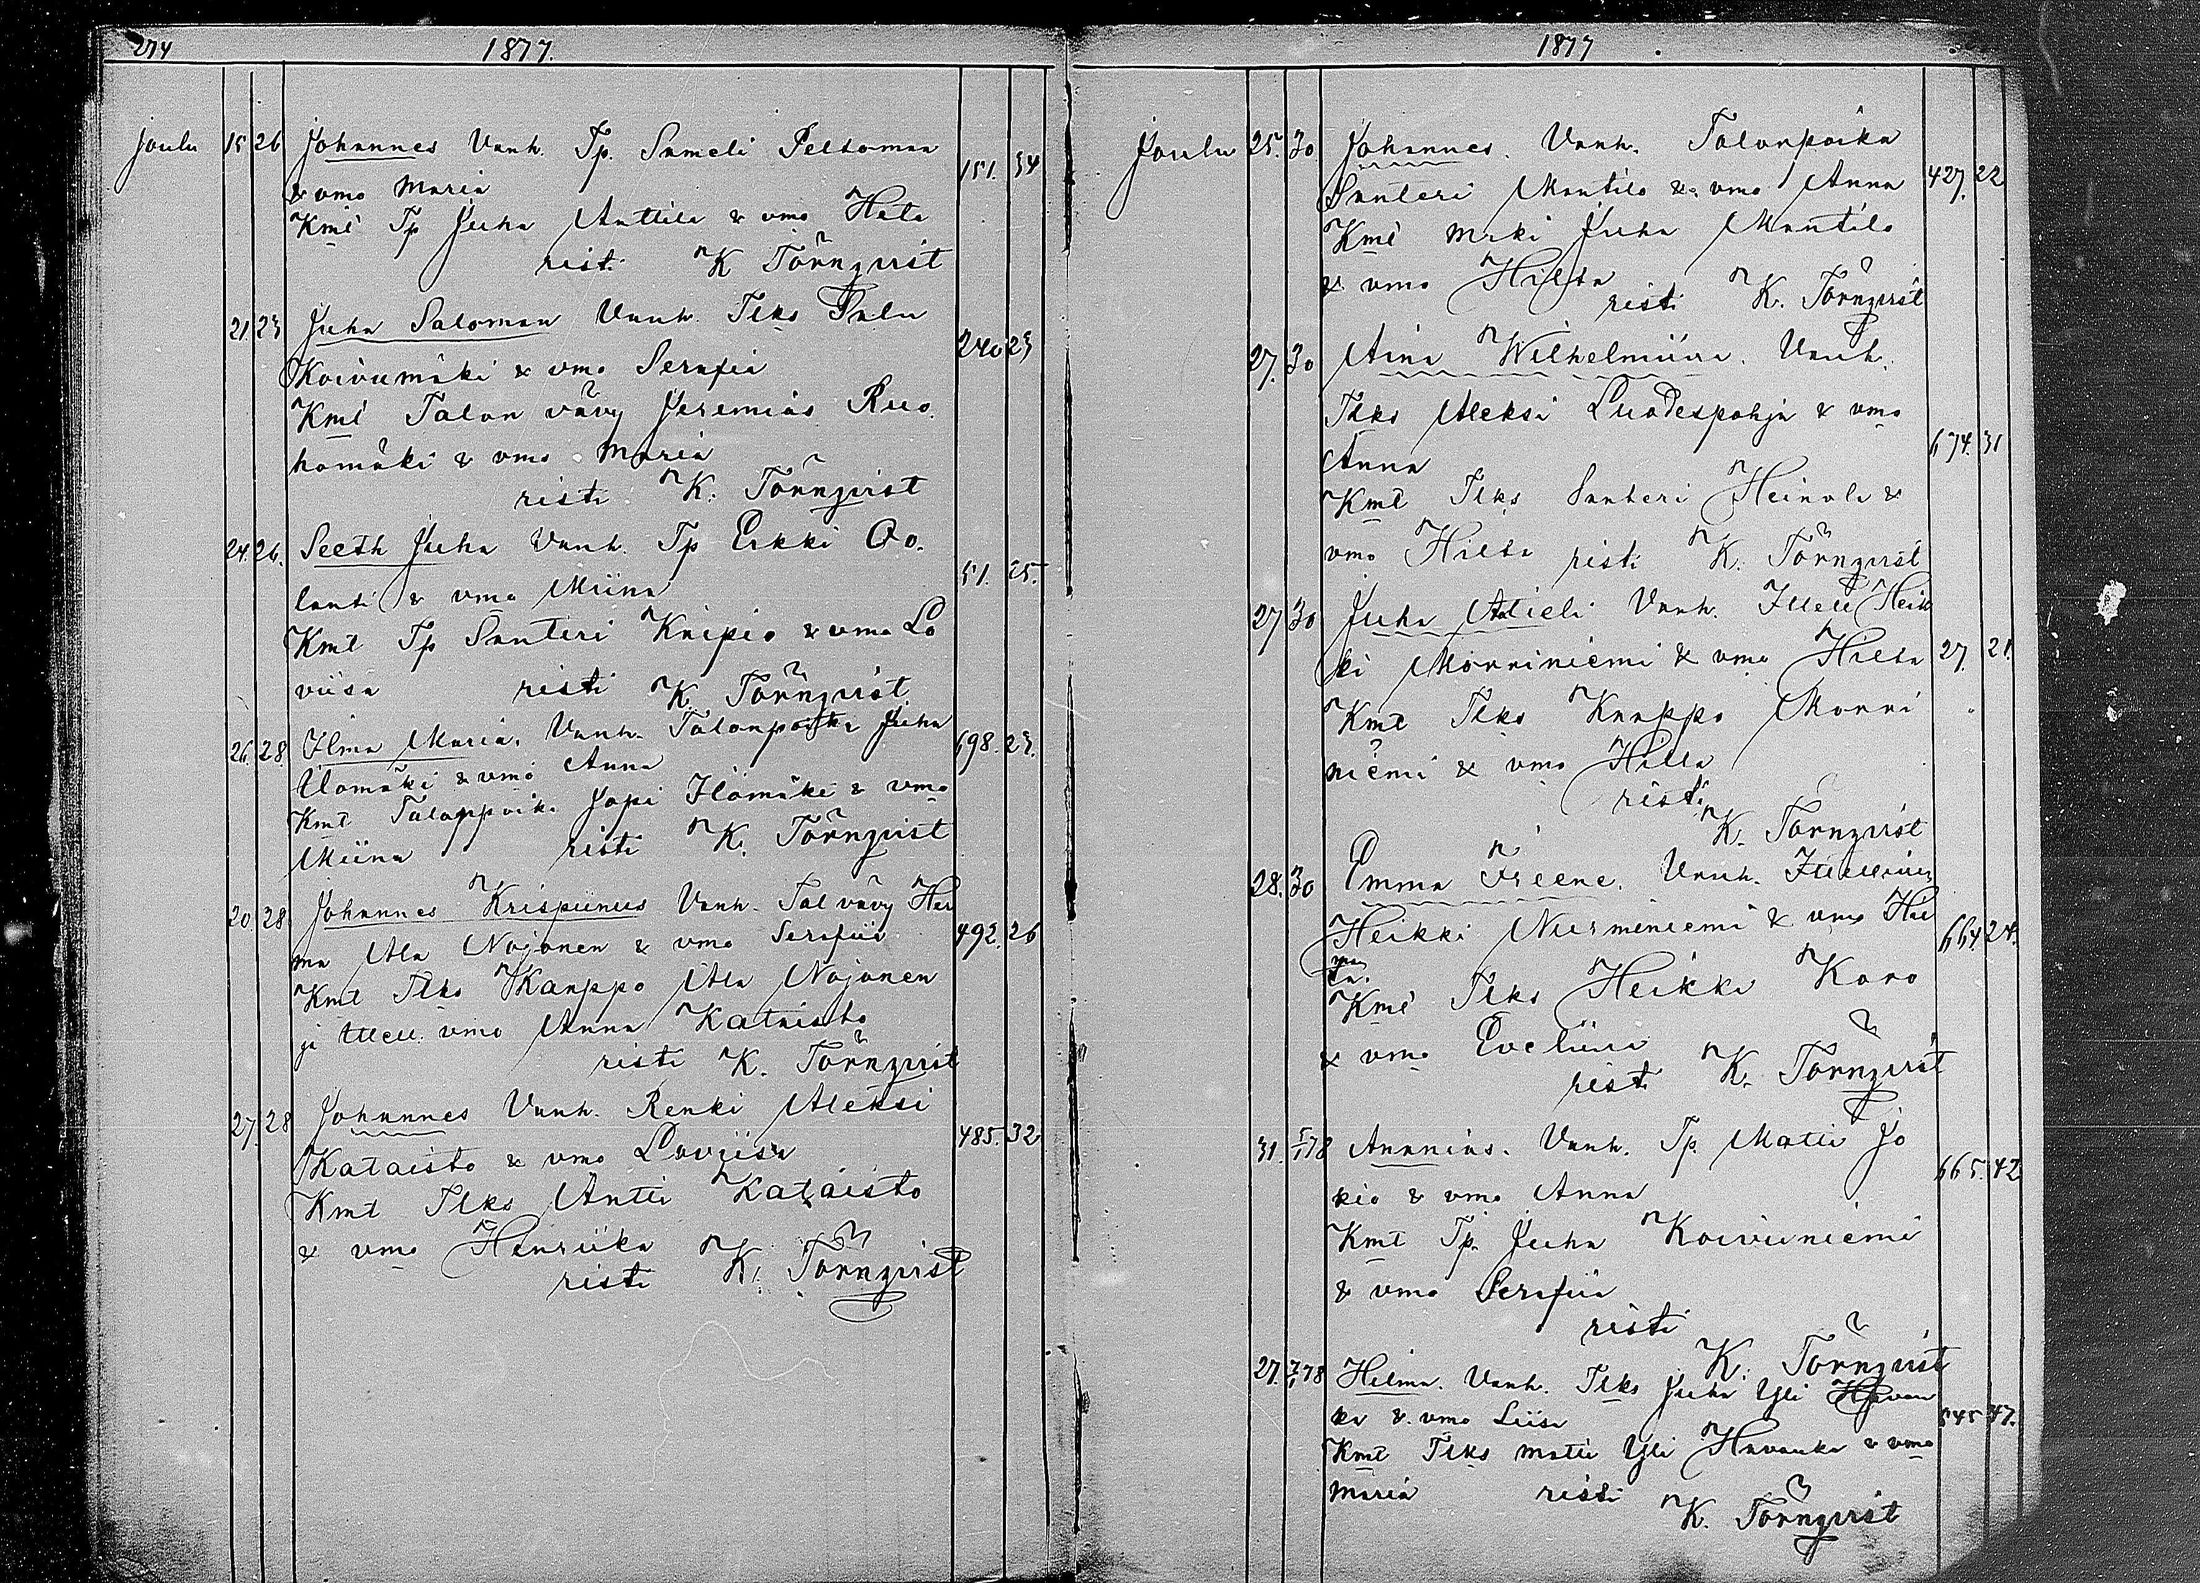 274 1877.
Joulu 15 26 Johannes Vanh. Tp. Sameli Peltoman 151. 34
& vmo Maria
Kmt Tp Juha Anttila & vmo
risti K Törnqvist
21. 23 Juha Saloman Vanh. Ilks 240 23
Koivumäki & vmo Serafia
Kmt Talon vävy Jeremias Ruo
homäki & vmo Maria
risti K. Törnqvist
24. 26. Seeth Juha Vanh. Tp Erkki Oo. 51. 25.
lanti & vmo Miina
Kmt Tp Santeri Knipio & vmo Lo
viisa risti K Törnqvist
26. 28. Ilma Maria. Vanh. Talonpoika Juha 698. 23.
Ilomäki & vmo Anna
Kmt Talonpoik. Jopi Ilomäki & vmo
Miina risti K. Törnqvist
20 28 Johannes Krispiinus Vanh. Tal vävy Her 492. 26
ma Ala Nojonen & vmo Serafiia
Kmt Ilks Kaappo Ala Nojonen
ja vmo Anna Kataisto
risti K. Törnqvist
27. 28 Johannes Vanh. Renki Aleksi 485. 32
Kataisto & vmo Loviisa
Kmt Ilks Antti Kataisto
& vmo Henriika
risti K. Törnqvist
1877
Joulu 25. 30. Johannes. Vanh. Talonpoika 427. 22
Santeri Mantila & vmo Anna
Kmt Juha Mantila
& vmo Hilta
risti K. Törnqvist
27. 30 Aina Wilhelmiina. Vanh.
Ilks Aleksi Luodespohja & vmo
Anna 674. 31
Kmt Ilks Santeri Heinola &
vmo Hilta risti K. Törnqvist
27 30 Juha Atieli Vanh. Itell Heik
ki Monniniemi & vmo Hilta 27. 21.
Kmt Ilks Kaappo Monni
niemi & vmo Hilta
risti
K. Törnqvist
28. 30 Emma Ireene. Vanh. Itellinen
Heikki Nurminiemi & vmo 664 24.
Kmt Ilks Heikki Koro
& vmo Eveliina
risti K. Törnqvist
31. 5/1 78 Ananias. Vanh. Tp. Matti Jo
kio & vmo Anna 665. 42
Kmt Tp. Juha Koivuniemi
& vmo Serafiia
risti
K. Törnqvist
27. 7/1 78 Hilma. Vanh. Ilks Juha Yli Havan
ka & vmo Liisa 545 47.
Kmt Ilks Matti Yli Havanka & vmo
Maria risti
K. Törnqvist